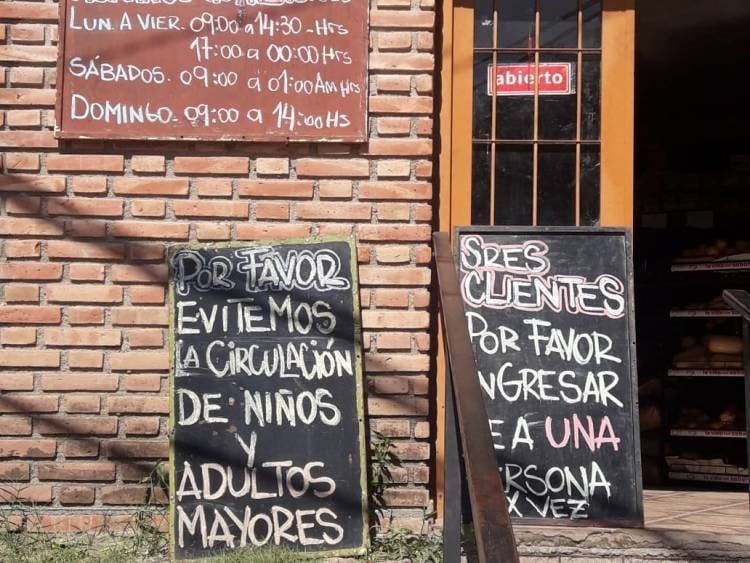 LUN. A VIER. 09:00 a 14:30 - HRS
17:00 a 00:00 HRS
SÁBADOS. 09:00 a 01:00 AM HRS.
DOMINGO. 09:00 a 14:00 HS
abierto
POR FAVOR
EVITEMOS
LA CIRCULACIÓN
DE NIÑOS
Y
ADULTOS
MAYORES
SRES
CLIENTES
POR FAVOR
NGRESAR
E A UNA
ERSONA
X VEZ